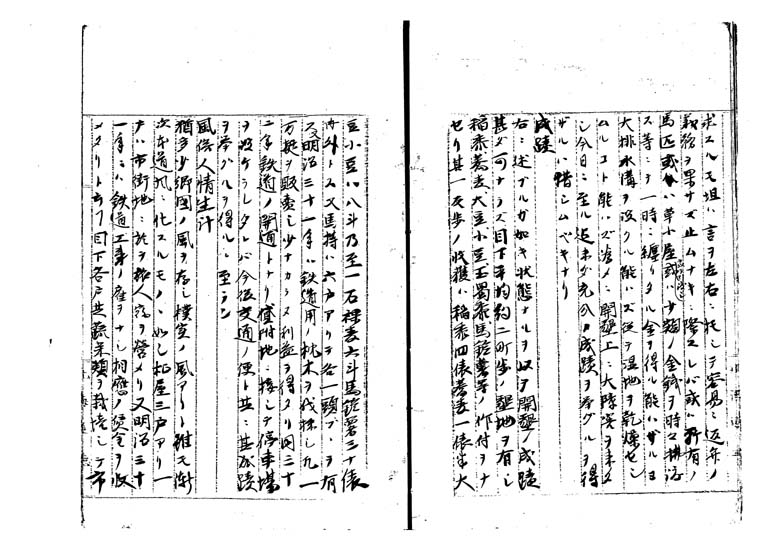 求スルモ坦ハ言ヲ左右ニ托シテ容易ニ返弁ノ
義務ヲ果サズ止ムナキニ際スレバ或ハ所有ノ
馬匹或ハ草小屋或ハ少額ノ金銭ヲ時々掛
ス等ニテ一時ニ纏リタル金ヲ得ル能ハザルヨ
大排水溝ヲ設クル能ハズ従ヲ湿地ヲ乾燥セシ
ムルコト能ハズ為メニ開墾上ニ大障害ヲ来タ
シ今日ニ至ル迄未ダ充分ノ成蹟ヲ挙グルヲ得
ザルハ惜シムベキナリ
成蹟
右ニ述ブルガ如キ状態ナルヲ以テ開墾ノ成蹟
甚ダ可ナラズ目下平均約二町歩ノ墾地ヲ有シ
稲黍蕎麦大豆小豆玉蜀黍馬鈴薯等ノ作付ヲナ
セリ其一反歩ノ収穫ハ稲黍四俵蕎麦一俵半大
豆小豆ハ八斗乃至一石裸麦六斗馬鈴薯三十俵
内外トス又馬持ハ六戸アリテ各一頭ヅヽヲ有
又明治三十一年ハ鉄道用ノ枕木ヲ伐採シ九一
万挺ヲ販売シ少ナカラズ利益ヲ得タリ同三十
二年鉄道ノ開通トナリ貸附地ニ接シテ停車場
ヲ設ケラレタレバ今後交通ノ便ト共ニ其成蹟
ヲ挙グルヲ得ルニ至ラン
風俗人情生計
猶多少郷国ノ風ヲ存シ樸実ノ風アリト雖モ漸
次本道風ニ化スルモノヽ如シ柾屋三戸アリ一
戸ハ市街地ニ於ヲ商人宿ヲ営メリ又明治三十
一年ニハ鉄道工事ノ雇ヲナシ相應ノ賃金ヲ収
メタリト云フ目下各戸共蔬菜類ヲ栽培シテ市